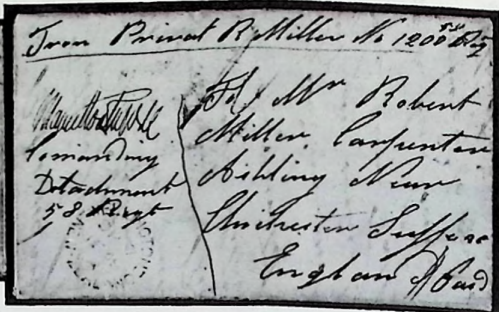 From Privat R. Miller No 1200
Comanding
Detachment
58 Regt
To Mr Robert
Miller Carpenter
Ashling Near
Chichester Sussex
England Paid